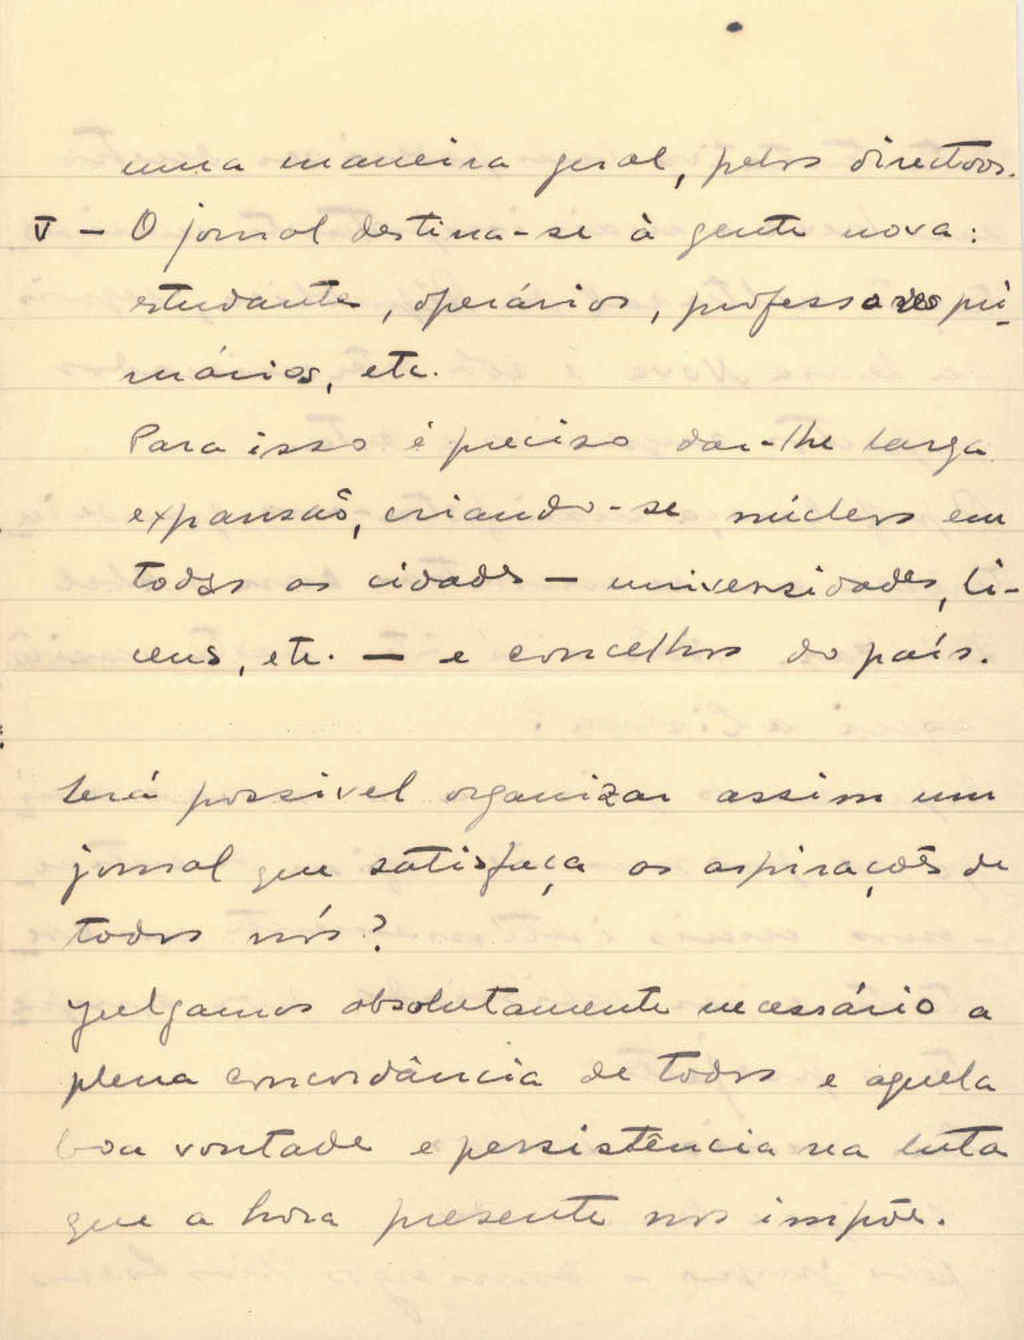 uma maneira geral, pelos directores.
V - O jornal destina-se à gente nova:
estudantes, operários, professores pri-
mários, etc.
Para isso é preciso dar-lhe larga
expansão, criando-se núcleos em
todas as cidades - universidades, li-
ceus, etc. - e concelhos do país.
Será possivel organizar assim um
jornal que satisfaça as aspirações de
todos nós?
Julgamos absolutamente necessário a
plena concordância de todos e aquela
boa vontade e persistência na luta
que a hora presente nos impõe.